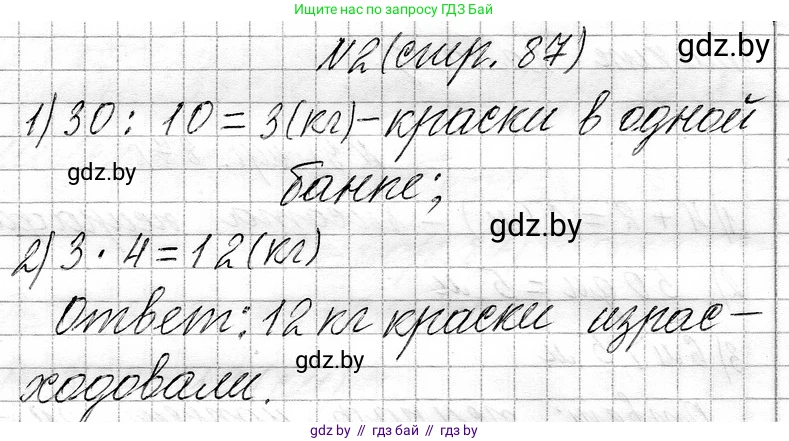 Ищите нас по запросу ГДЗ Бай
№2 (стр. 87) gdz.by
1) 30 : 10 = 3(кг) – краски в одной
gdz.by
банке;
gdz.by
2) 3 · 4 = 12 (кг)
Ответ: 12 кг краски израс–
gdz.by
ходовали.
gdz.by // гдз бай // gdz.by